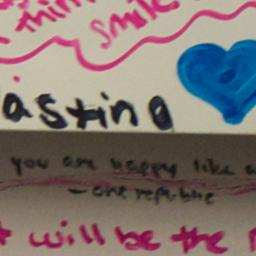 thin
smile
asting
you are happy like a
- one republic
t will be the